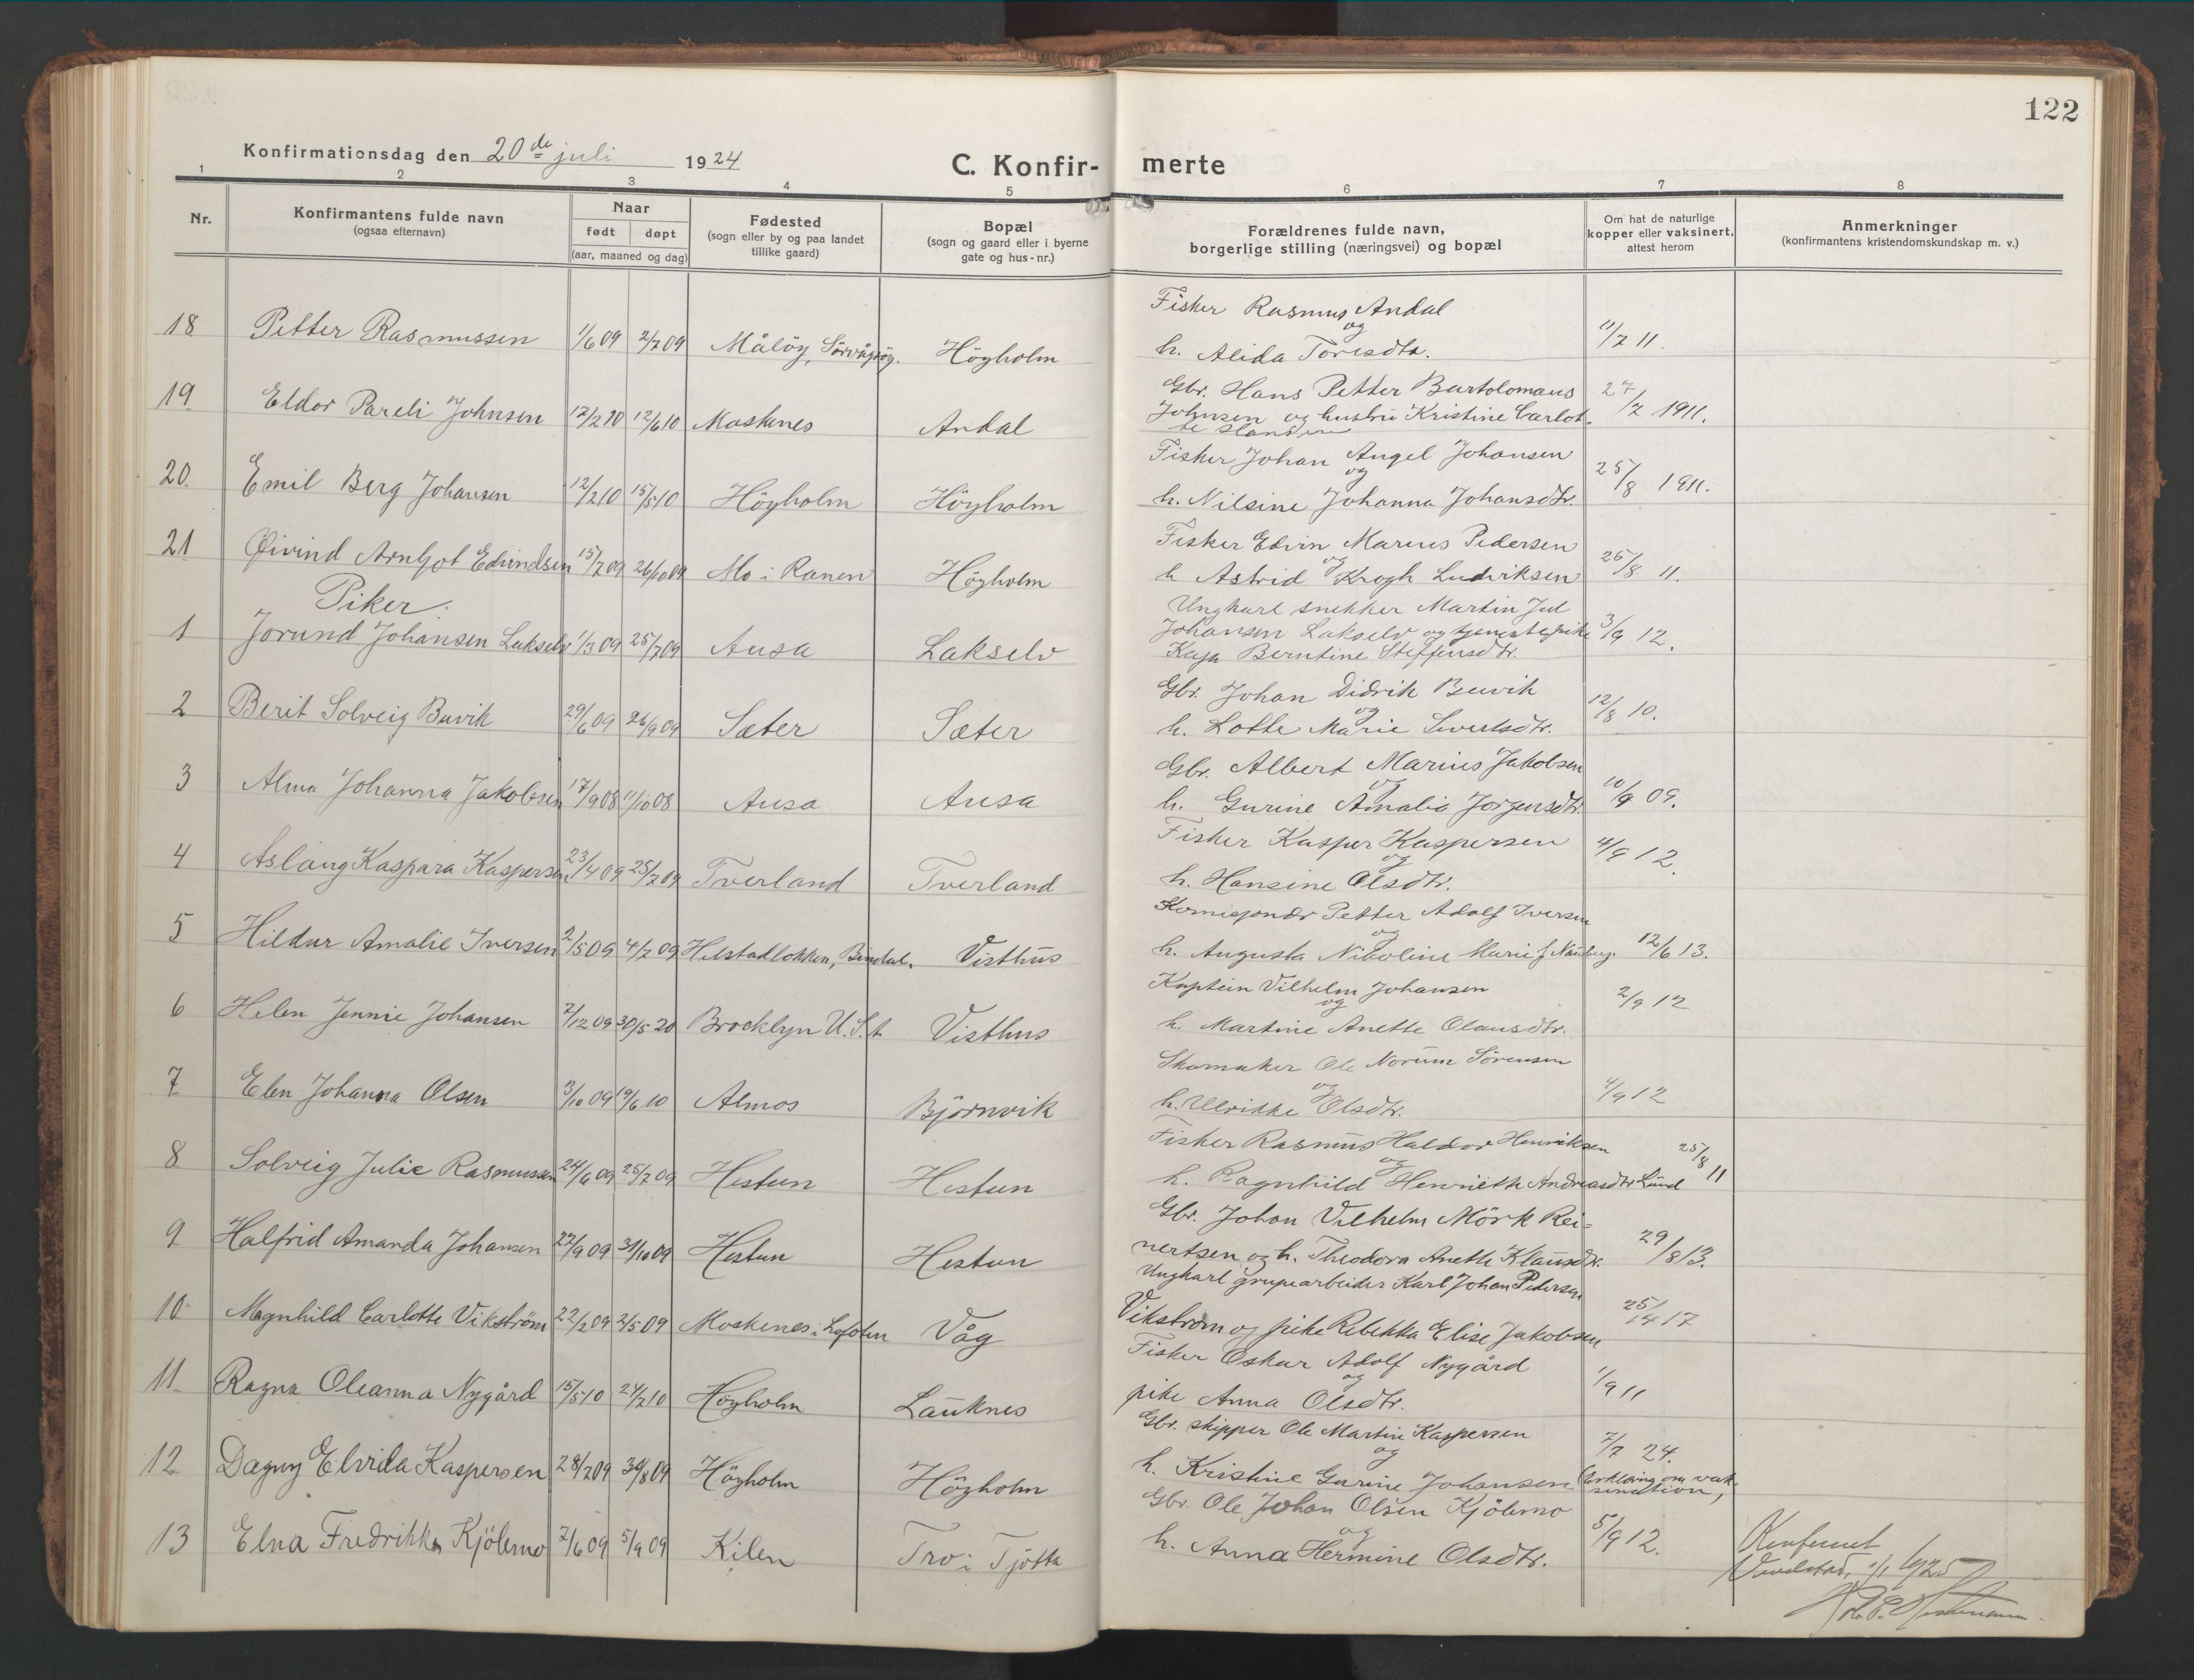 122
Konfirmationsdag den 20de juli 1924
C. Konfir- merte
1 2 3 4 5 6 7 8
Nr.
Konfirmantens fulde navn
(ogsaa efternavn)
Naar
født døpt
(aar, maaned og dag)
Fødested
(sogn eller by og paa landet
tillike gaard)
Bopæl
(sogn og gaard eller i byerne
gate og hus-nr.)
Forældrenes fulde navn,
borgerlige stilling (næringsvei) og bopæl
Om hat de naturlige
kopper eller vaksinert,
attest herom
Anmerkninger
(konfirmantens kristendomskundskap m. v.)
18 Petter Rasmussen 1/6 09 2/7 09 Måløy, Sörvågöy. Höyholm
Fisker Rasmus Andal
og
h. Alida Toresdtr.
11/7 11.
19 Eldor Pareli Johnsen 17/2 10 12/6 10 Moskenes Andal
Gbr. Hans Petter Bartolomæus
Johnsen og hustru Kristine Carlot-
te
27/7 1911.
20 Emil Berg Johansen 12/2 10 15/5 10 Höyholm Höyholm
Fisker Johan Angel Johansen
og
h. Nilsine Johanna Johansdtr.
25/8 1911.
21 Øivind Arnljot Edvindsen 15/7 09 26/10 09 Mo i Ranen Höyholm
Fisker Edvin Marius Pedersen
og
h Astrid Krogh Ludviksen
25/8 11.
Piker.
1 Jorund Johansen Lakselv 1/3 09 25/7 09 Ausa Lakselv
Ungkarl snekker Martin Jul
Johansen Lakselv og tjenestepike
Kaja Berntine Steffensdtr.
3/9 12.
2 Berit Solveig Buvik 29/6 09 26/9 09 Sæter Sæter
Gbr. Johan Didrik Buvik
og
h. Lotte Marie Sivertsdtr.
12/8 10.
3 Alma Johanna Jakobsen 17/9 08 11/10 08 Ausa Ausa
Gbr. Albert Marius Jakobsen
og
h. Gurine Amalia Jörgensdtr.
10/9 09.
4 Aslaug Kaspara Kaspersen 23/4 09 25/7 09 Tverland Tverland
Fisker Kasper Kaspersen
og
h. Hansine Olsdtr.
4/9 12.
5 Hildur Amalie Iversen 2/5 09 4/7 09 Helstadlökken, Bindal. Visthus
Petter Adolf Iversen
og
h. Augusta Nikoline Marie f.
12/6 13.
6 Helen Jennie Johansen 7/12 09 30/5 20 Brocklyn U.S.A. Visthus
Kaptein Vilhelm Johansen
og
h. Martine Anette Olausdtr.
2/9 12
7 Elen Johanna Olsen 3/10 09 19/6 10 Almos Björnvik
Skomaker Ole Norum Sörensen
og
h. Ulrikke Olsdtr.
4/9 12
8 Solveig Julie Rasmussen 24/6 09 25/7 09 Hestun Hestun
Fisker Rasmus Haldor Henriksen
og
h. Ragnhild Henriette Andreasdtr. Lund
25/8 11
9 Halfrid Amanda Johansen 27/9 09 31/10 09 Hestun Hestun
Gbr. Johan Vilhelm Mörk Rei-
nertsen og h. Theodora Anette Klausdtr.
29/8 13.
10 Magnhild Carlotte Vikström 22/2 09 2/5 09 Moskenes i Lofoten Våg
Ungkarl grupearbeider Karl Johan Pedersen
Vikström og pike Rebekka Elise Jakobsen
25/14 17
11 Ragna Oleanna Nygård 15/5 10 24/7 10 Höyholm Lauknes
Fisker Oskar Adolf Nygård
og
pike Anna Olsdtr.
1/9 11
12 Dagny Elvida Kaspersen 28/7 09 30/8 09 Höyholm Höyholm
Gbr. skipper Ole Martin Kaspersen
og
h. Kristine Gurine Johansen
7/7 24.
(erklæring om vak-
sination)
13 Elna Fredrikke Kjölemo 7/6 09 5/9 09 Kilen Tro i Tjötta
Gbr. Ole Johan Olsen Kjölemo
og
h. Anna Hermine Olsdtr.
5/9 12.
Konferert
1/1 1925